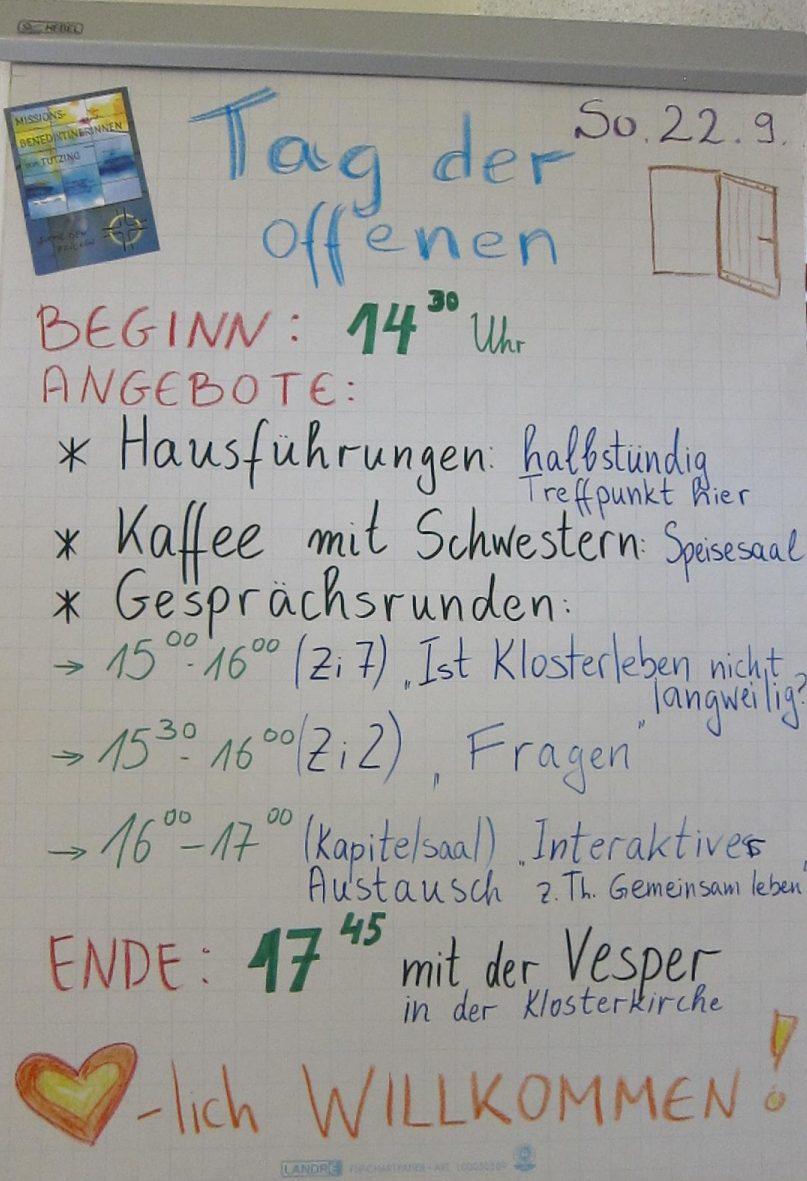 HEBEL
MISSIONS-
BENEDIKTINERINNEN
VON TUTZING
So. 22.9.
Tag der
offenen
BEGINN: 14³⁰ Uhr
ANGEBOTE:
* Hausführungen: halbstündig
Treffpunkt hier
* Kaffee mit Schwestern: Speisesaal
* Gesprächsrunden:
→ 15⁰⁰-16⁰⁰ (Zi 7) „Ist Klosterleben nicht
langweilig?"
→ 15³⁰-16⁰⁰ (Zi 2) „Fragen"
→ 16⁰⁰-17⁰⁰ (Kapitelsaal) „Interaktiver
Austausch z. Th. Gemeinsam leben"
ENDE: 17⁴⁵ mit der Vesper
in der Klosterkirche
-lich WILLKOMMEN!
LANDRÉ FLIPCHARTPAPIER - ART.